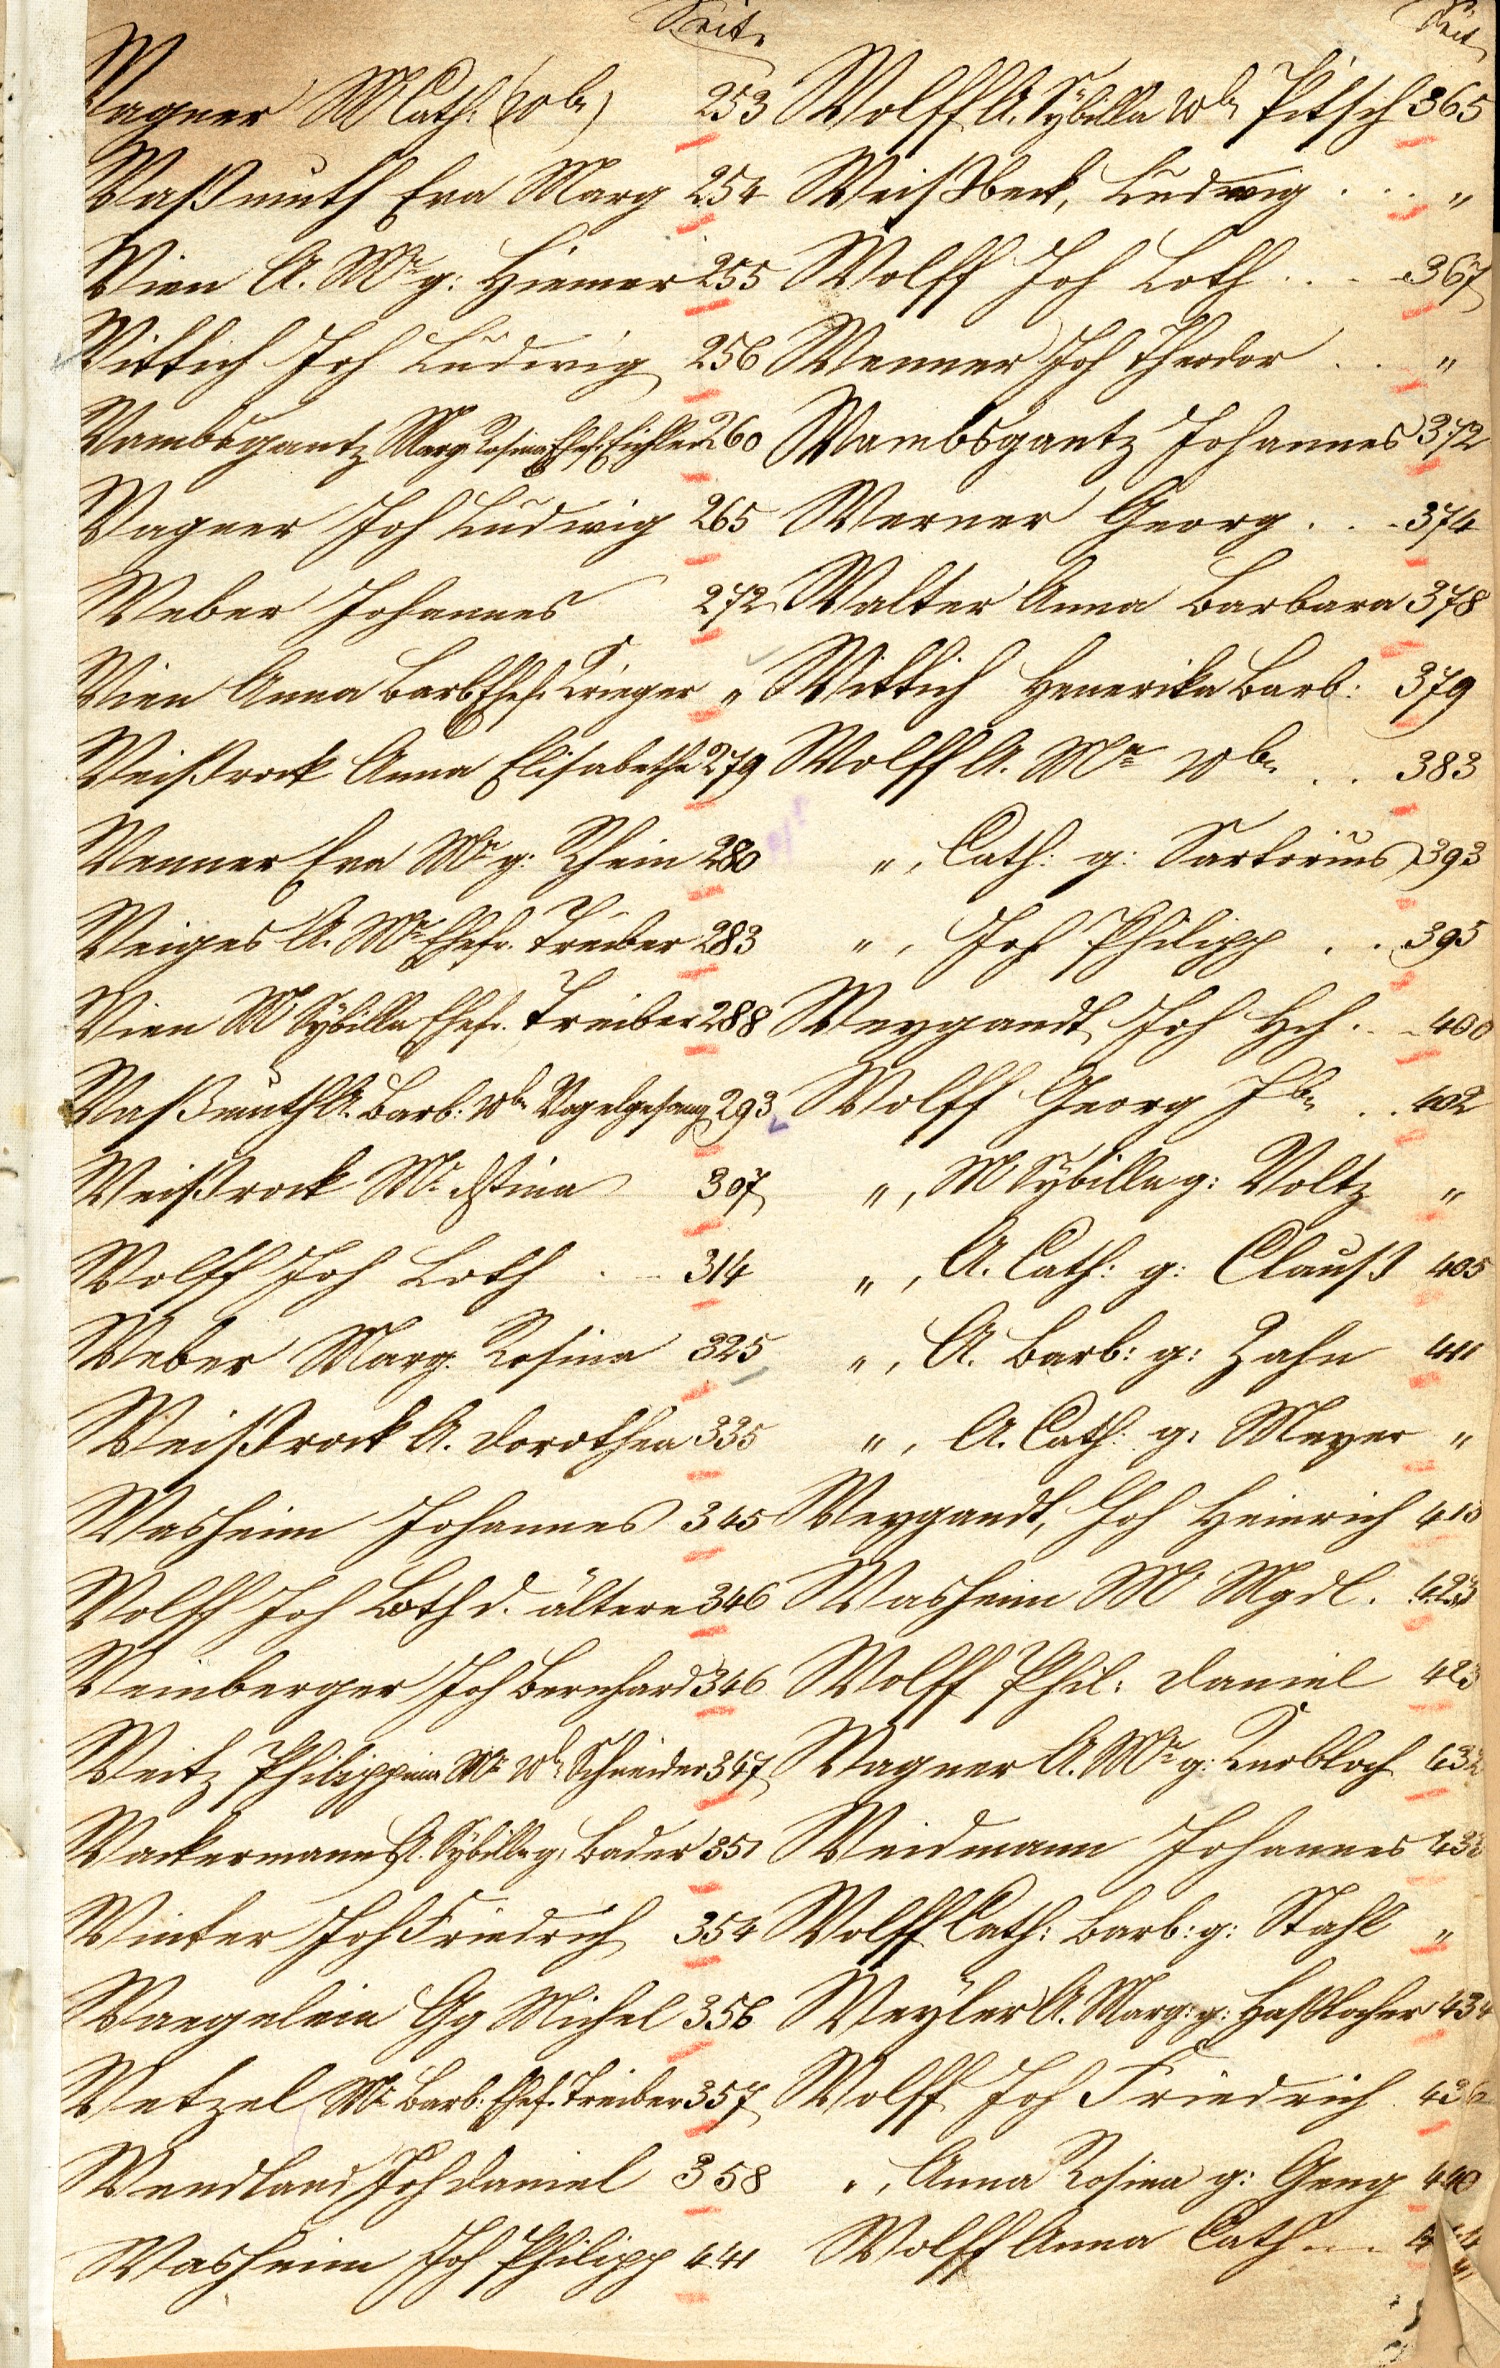 Seite
Wagner M Cath: (Wbe) 253
Waßmuth Eva Marg 254
Wien A. Mr g: Hiemer 255
Wittich Joh Ludwig 256
Wambsgantz Marg. Rosina Ehef. Eichler 260
Wagner Joh Ludwig 265
Weber Johannes 272
Wien Anna Barb Ehef. Krieger "
Weißrock Anna Elisabetha 279
Wenner Eva Mr g: Rhein 280
Weiges A. Mr Ehefr. Treiber 283
Wien M Sÿbilla Ehefr. Treiber 288
Waßmuth A. Barb: Wbe Vogelgesang 293
Weißrock Mr Xstina 307
Wolff Joh Loth . . 314
Weber Marg. Rosina 325
Weißrock A. Dorothea 335
Washeim Johannes 345
Wolff Joh Loth d. ältere 346
Weinberger Joh Bernhard 346
Weitz Philippina Mr Wb. Schneider 347
Wackermann A. Sÿbilla g: Bader 351
Winter Joh Friedrich 354
Waegelein Gg Michel 356
Wetzel Mr Barb. Ehef. Treiber 357
Wendland Joh Daniel 358
Washeim Joh Philipp 441
Seit
Wolff A. Sÿbilla Wbe Pitsch 365
Weißbeck, Ludwig . . . "
Wolff Joh Loth . . . 367
Wenner Joh Theodor . . "
Wambsgantz Johannes 372
Werner Georg . . . 374
Walter Anna Barbara 378
Wittich Henerika Barb: 379
Wolff A. Mr Wbe . . 383
" , Cath: g: Sartorius 393
" , Joh Philipp . . 395
Weygandt Joh Hch . . 400
Wolff Georg Jbe . . 402
" , M Sÿbilla g: Voltz "
" , A. Cath: g: Clauß 405
" , A. Barb: g: Zahn 411
" , A. Cath: g: Meyer "
Weygandt, Joh Heinrich 413
Washeim M Mgdl. 423
Wolff Phil: Daniel 423
Wagner A. Mr g: Knobloch 432
Weidmann Johannes 433
Wolff Cath: Barb: g: Stahl "
Weyler A. Marg: g: Haßlocher 434
Wolff Joh Friedrich 436
" , Anna Rosina g: Geng 440
Wolff Anna Cath . . .